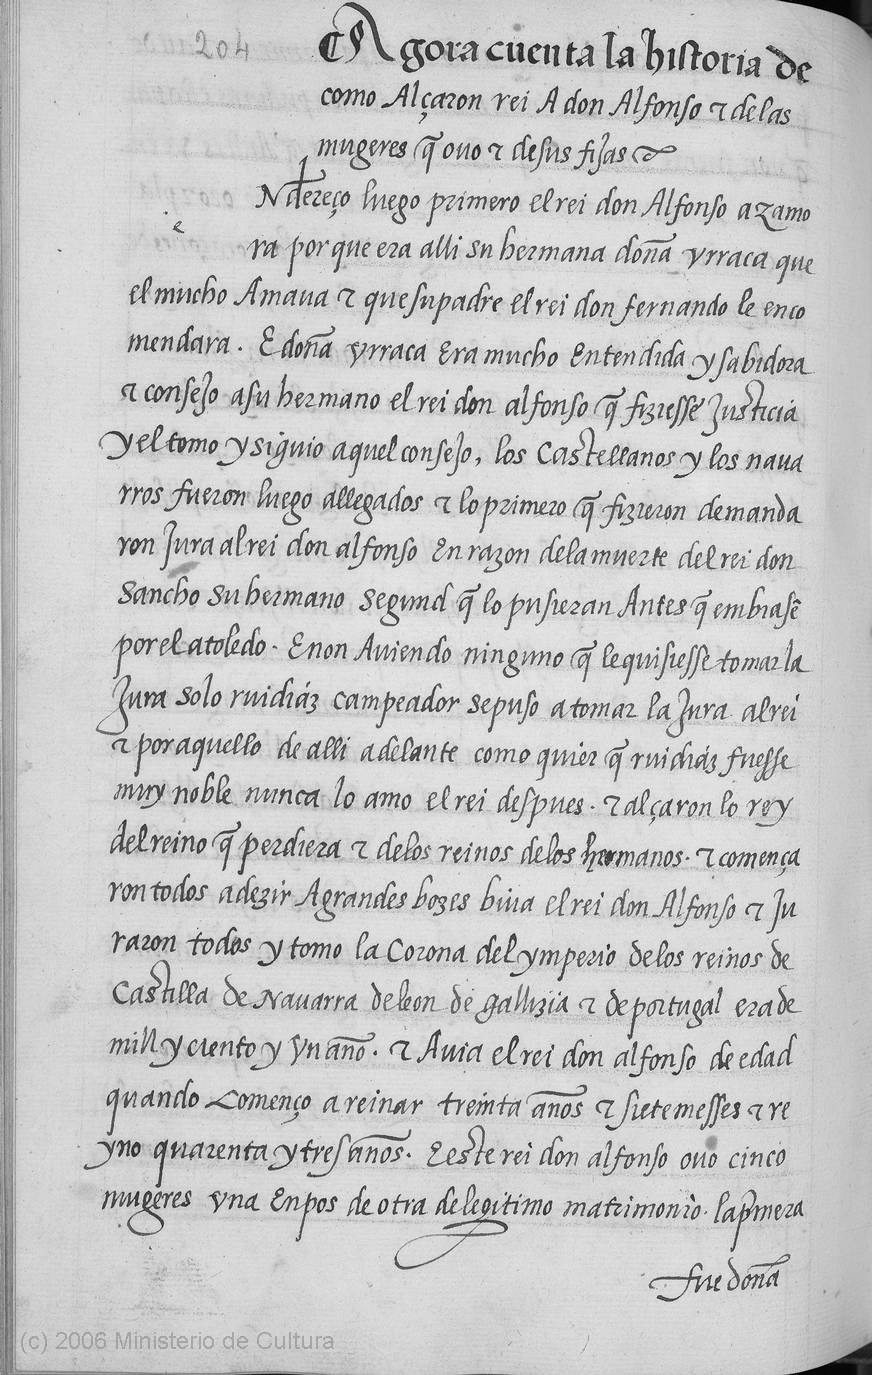 204
Agora cuenta la historia de
como Alçaron rei A don Alfonso τ delas
mugeres q̃ ouo τ desus fijas
Ndereço luego primero el rei don Alfonso a zamo
e
ra por que era alli su hermana doña vrraca que
el mucho Amaua τ que su padre el rei don fernando le enco
mendara . E doña vrraca Era mucho Entendida y sabidora
τ consejo asu hermano el rei don alfonso q̃ fiziesse Justicia
y el tomo y siguio aquel consejo, los Castellanos y los naua
rros fueron luego allegados τ lo primero q̃ fizieron demanda
ron Jura al rei don alfonso En razon dela muerte del rei don
Sancho Su hermano Segund q̃ lo pusieran Antes q̃ embiasẽ
por el a toledo . E non Auiendo ninguno q̃ le quisiesse tomar la
Jura Solo ruidiáz campeador Se puso a tomar la Jura al rei
τ por aquello de alli adelante como quier q̃ ruidiáz fuesse
muy noble nunca lo amo el rei despues . τ alçaron lo rey
del reino q̃ perdiera τ delos reinos delos hermanos . τ comença
ron todos a dezir A grandes bozes biua el rei don Alfonso τ Ju
raron todos y tomo la Corona del ymperio delos reinos de
Castilla de Nauarra de leon de gallizia τ de portugal era de
mill y ciento y vn año . τ Auia el rei don alfonso de edad
quando Començo a reinar treinta años τ siete messes τ re
yno quarenta y tres años . E este rei don alfonso ouo cinco
mugeres vna Enpos de otra de legitimo matrimonio . la p̃mera
fue doña
(c) 2006 Ministerio de Cultura